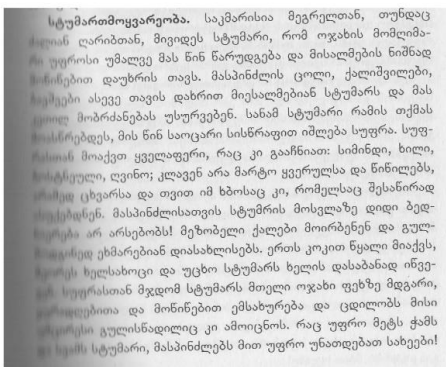 სტუმართმოყვარეობა. საკმარისია მეგრელთან, თუნდაც
ძალიან ღარიბთან, მივიდეს სტუმარი, რომ ოჯახის მომღიმა-
რი უფროსი უმალვე მას წინ წარუდგება და მისალმების ნიშნად
მოწიწებით დაუხრის თავს. მასპინძლის ცოლი, ქალიშვილები,
ბავშვები ასევე თავის დახრით მიესალმებიან სტუმარს და მას
მობრძანებას უსურვებენ. სანამ სტუმარი რამის თქმას
მოასწრებდეს, მის წინ საოცარი სისწრაფით იშლება სუფრა. სუფ-
რასთან მოაქვთ ყველაფერი, რაც კი გააჩნიათ: სიმინდი, ხილი,
ბოსტნეული, ღვინო; კლავენ არა მარტო ყვერულსა და წიწილებს,
არამედ ცხვარსა და თვით იმ ხბოსაც კი, რომელსაც შესაწირად
ასუქებდნენ. მასპინძლისათვის სტუმრის მოსვლაზე დიდი ბედ-
ნიერება არ არსებობს! მეზობელი ქალები მოირბენენ და გულ-
ეხმარებიან დიასახლისებს. ერთს კოკით წყალი მიაქვს,
მეორეს ხელსახოცი და უცხო სტუმარს ხელის დასაბანად იწვე-
ვენ. სუფრასთან მჯდომ სტუმარს მთელი ოჯახი ფეხზე მდგარი,
ყურადღებითა და მოწიწებით ემსახურება და ცდილობს მისი
გულისწადილიც კი ამოიცნოს. რაც უფრო მეტს ჭამს
და სვამს სტუმარი, მასპინძლებს მით უფრო უნათდებათ სახეები!